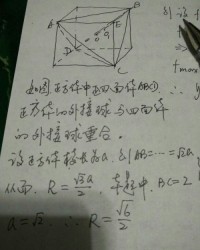 A
B
E
D
O
a
C
则设
f
f max
如图正方体中正四面体ABCD,
正方体的外接球与四面体
的外接球重合。
设正方体棱长为a,则AB=…=√2a
从而, R = √3a/2, 本题中, BC=2
a=√2 ∴ R = √6/2